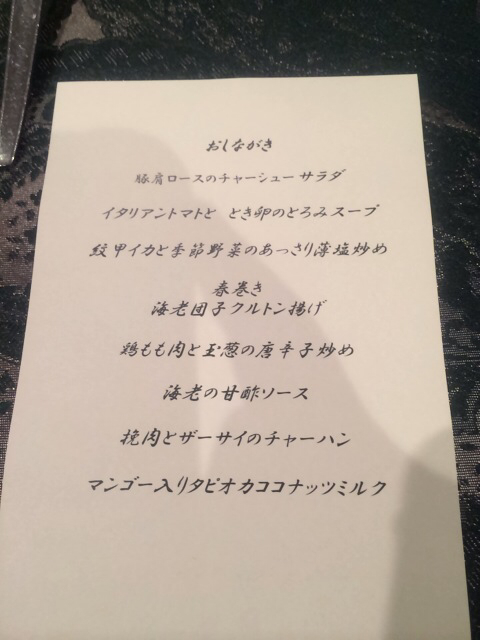 おしながき
豚肩ロースのチャーシューサラダ
イタリアントマトと とき卵のとろみスープ
紋甲イカと季節野菜のあっさり薄塩炒め
春巻き
海老団子クルトン揚げ
鶏もも肉と玉葱の唐辛子炒め
海老の甘酢ソース
挽肉とザーサイのチャーハン
マンゴー入りタピオカココナッツミルク